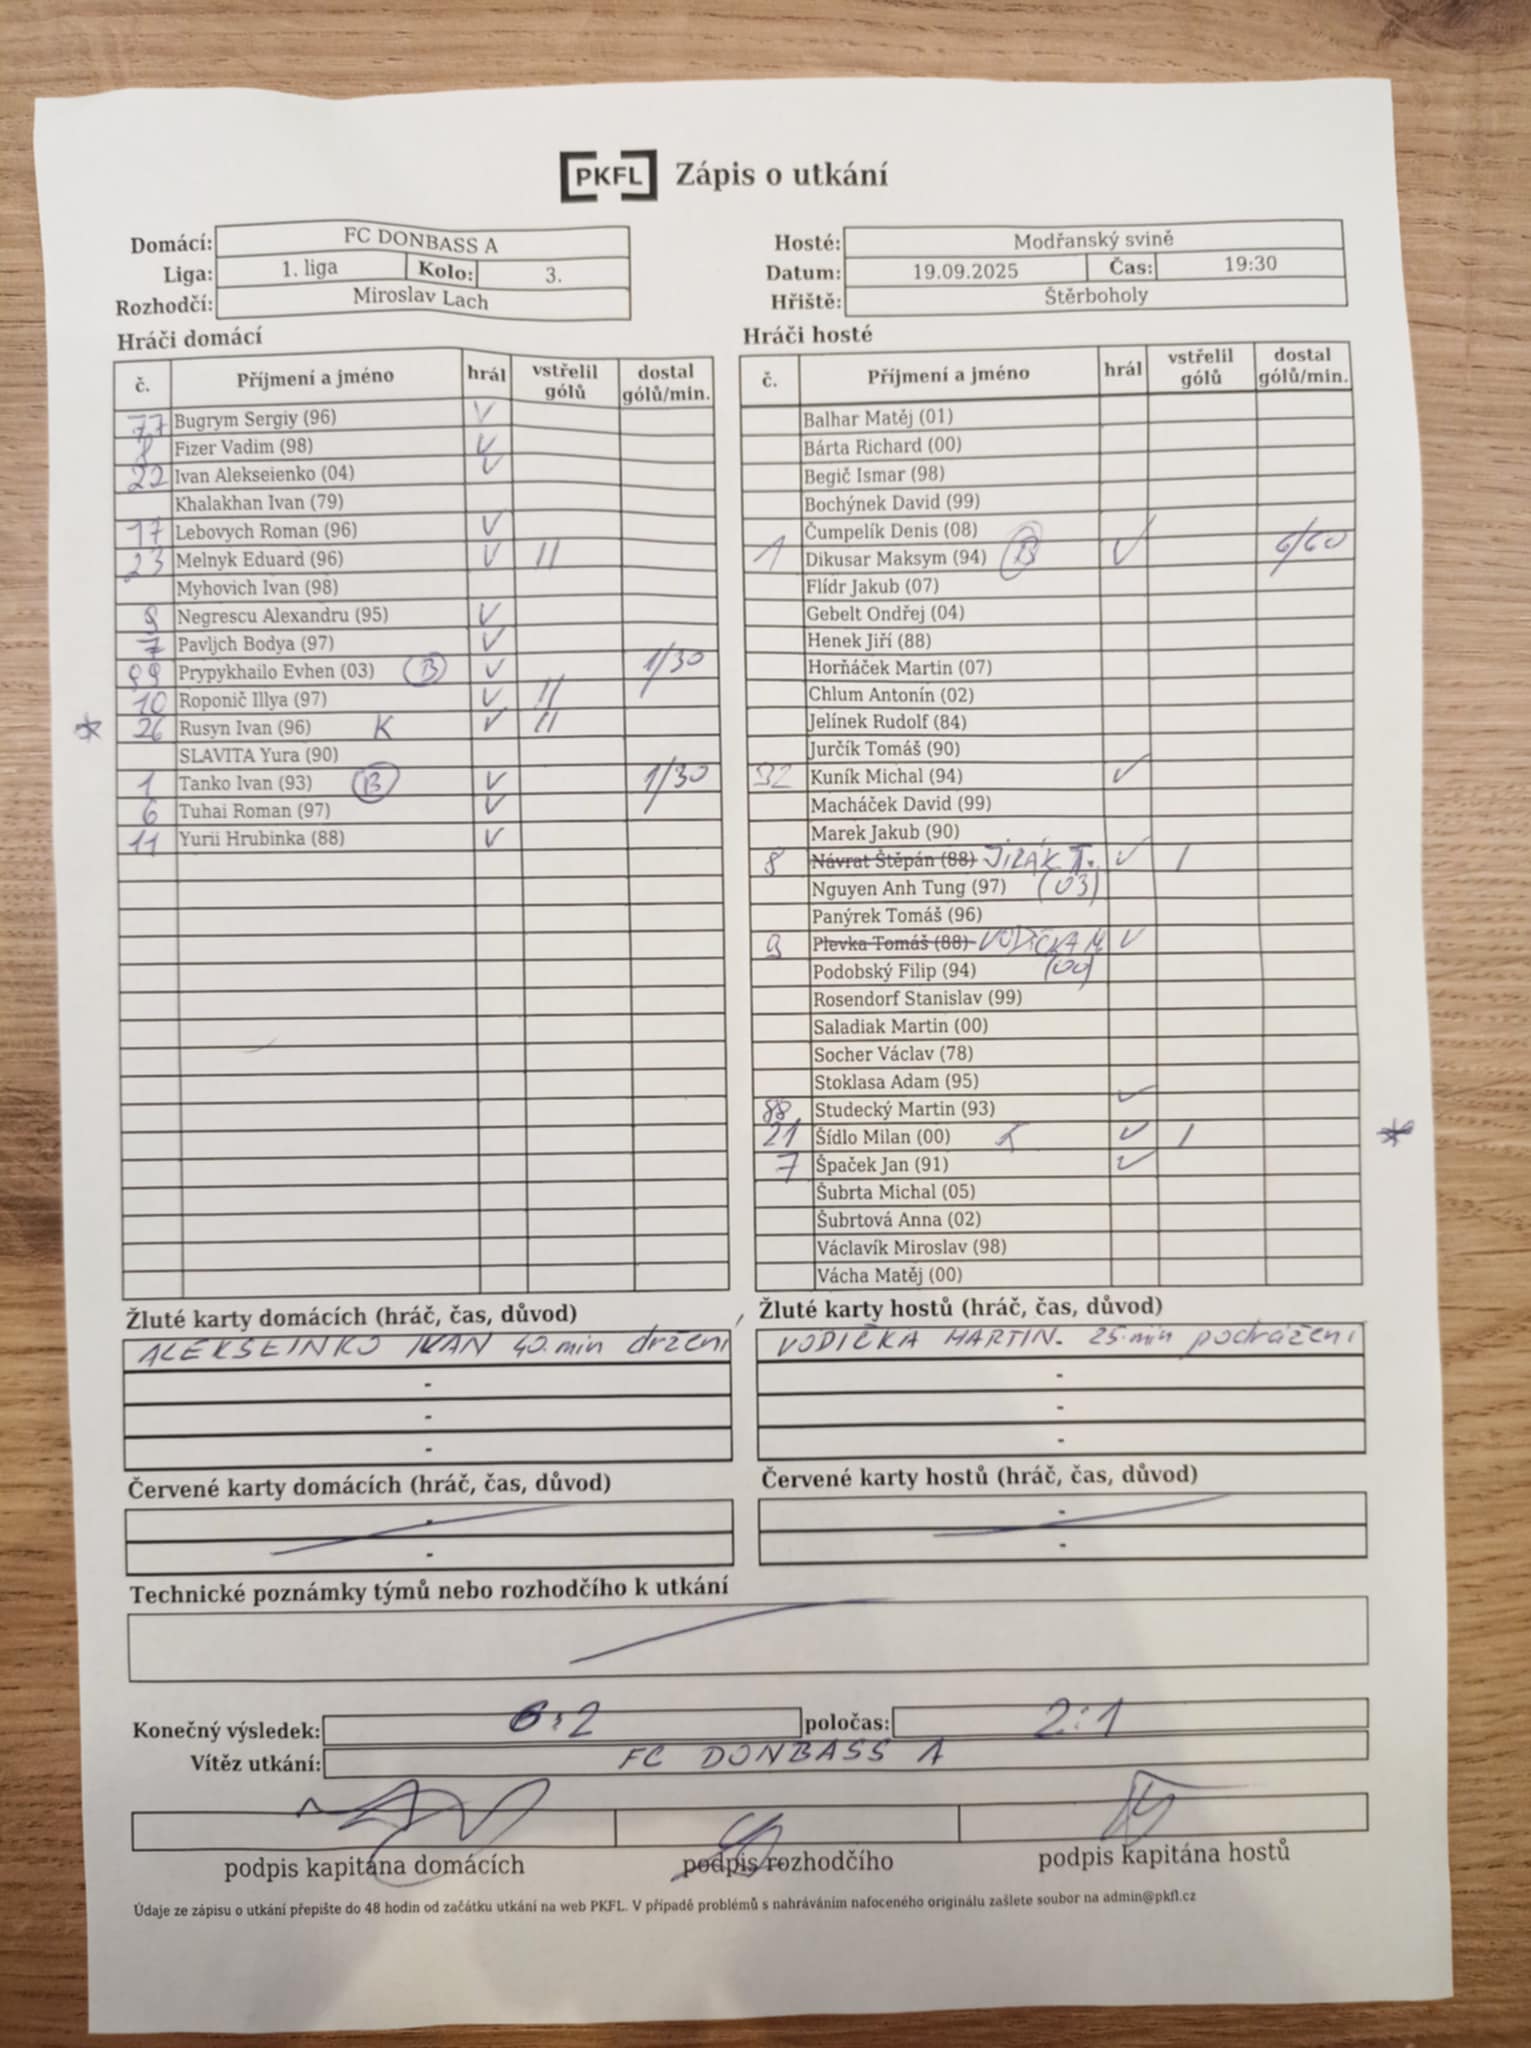 PKFL Zápis o utkání
Domácí: FC DONBASS A
Liga: 1. liga Kolo: 3.
Rozhodčí: Miroslav Lach
Hosté: Modřanský svině
Datum: 19.09.2025 Čas: 19:30
Hřiště: Štěrboholy
Hráči domácí
č. Příjmení a jméno hrál vstřelil gólů dostal gólů/min.
77 Bugrym Sergiy (96) V
8 Fizer Vadim (98) V
22 Ivan Alekseienko (04) V
Khalakhan Ivan (79)
17 Lebovych Roman (96) V
23 Melnyk Eduard (96) V II
Myhovich Ivan (98)
9 Negrescu Alexandru (95) V
7 Pavljch Bodya (97) V
99 Prypykhailo Evhen (03) B V 1/30
10 Roponič Illya (97) V II
* 26 Rusyn Ivan (96) K V II
SLAVITA Yura (90)
1 Tanko Ivan (93) B V 1/30
6 Tuhai Roman (97) V
11 Yurii Hrubinka (88) V
Hráči hosté
č. Příjmení a jméno hrál vstřelil gólů dostal gólů/min.
Balhar Matěj (01)
Bárta Richard (00)
Begič Ismar (98)
Bochýnek David (99)
Čumpelík Denis (08)
1 Dikusar Maksym (94) B V 6/60
Flídr Jakub (07)
Gebelt Ondřej (04)
Henek Jiří (88)
Horňáček Martin (07)
Chlum Antonín (02)
Jelínek Rudolf (84)
Jurčík Tomáš (90)
Kuník Michal (94) V
Macháček David (99)
Marek Jakub (90)
8 Návrat Štěpán (88) JIRÁK T. V I
Nguyen Anh Tung (97) (03)
Panýrek Tomáš (96)
9 Plevka Tomáš (88) VODIČKA M. V
Podobský Filip (94) (00)
Rosendorf Stanislav (99)
Saladiak Martin (00)
Socher Václav (78)
Stoklasa Adam (95)
88 Studecký Martin (93) V
21 Šídlo Milan (00) K V I *
7 Špaček Jan (91) V
Šubrta Michal (05)
Šubrtová Anna (02)
Václavík Miroslav (98)
Vácha Matěj (00)
Žluté karty domácích (hráč, čas, důvod)
ALEKSEINKO IVAN 40. min držení
-
-
-
Žluté karty hostů (hráč, čas, důvod)
VODIČKA MARTIN. 25. min podražení
-
-
-
Červené karty domácích (hráč, čas, důvod)
-
-
Červené karty hostů (hráč, čas, důvod)
-
-
Technické poznámky týmů nebo rozhodčího k utkání
Konečný výsledek: 6:2 poločas: 2:1
Vítěz utkání: FC DONBASS A
podpis kapitána domácích podpis rozhodčího podpis kapitána hostů
Údaje ze zápisu o utkání přepište do 48 hodin od začátku utkání na web PKFL. V případě problémů s nahráváním nafoceného originálu zašlete soubor na admin@pkfl.cz